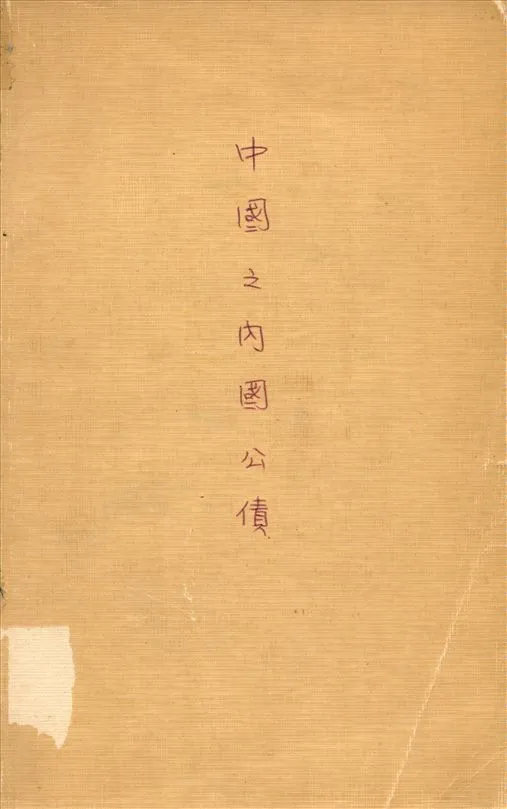 中國之內國公債